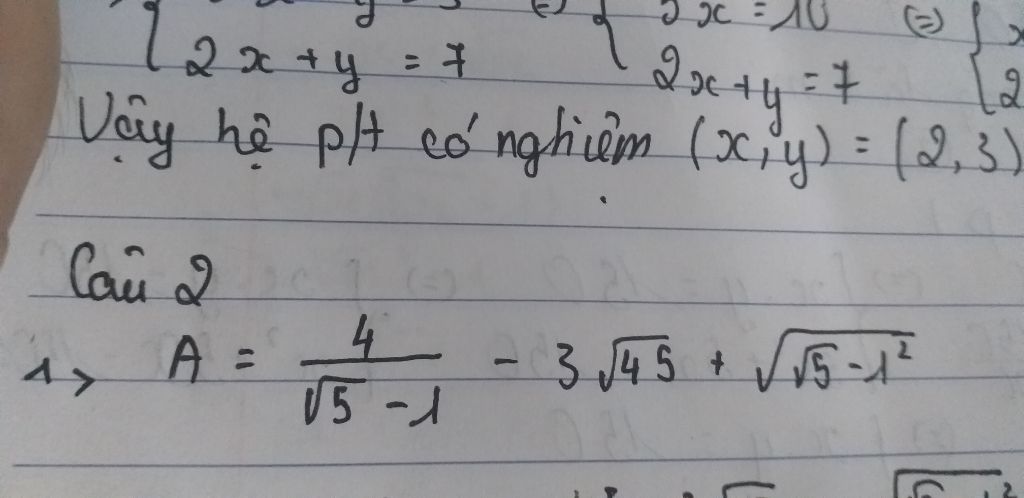 2x + y = 7 2x + y = 7
Vậy hệ p/t có nghiệm (x,y) = (2,3)
Câu 2
1> A = 4/(√5 - 1) - 3√45 + √(√5 - 1²)